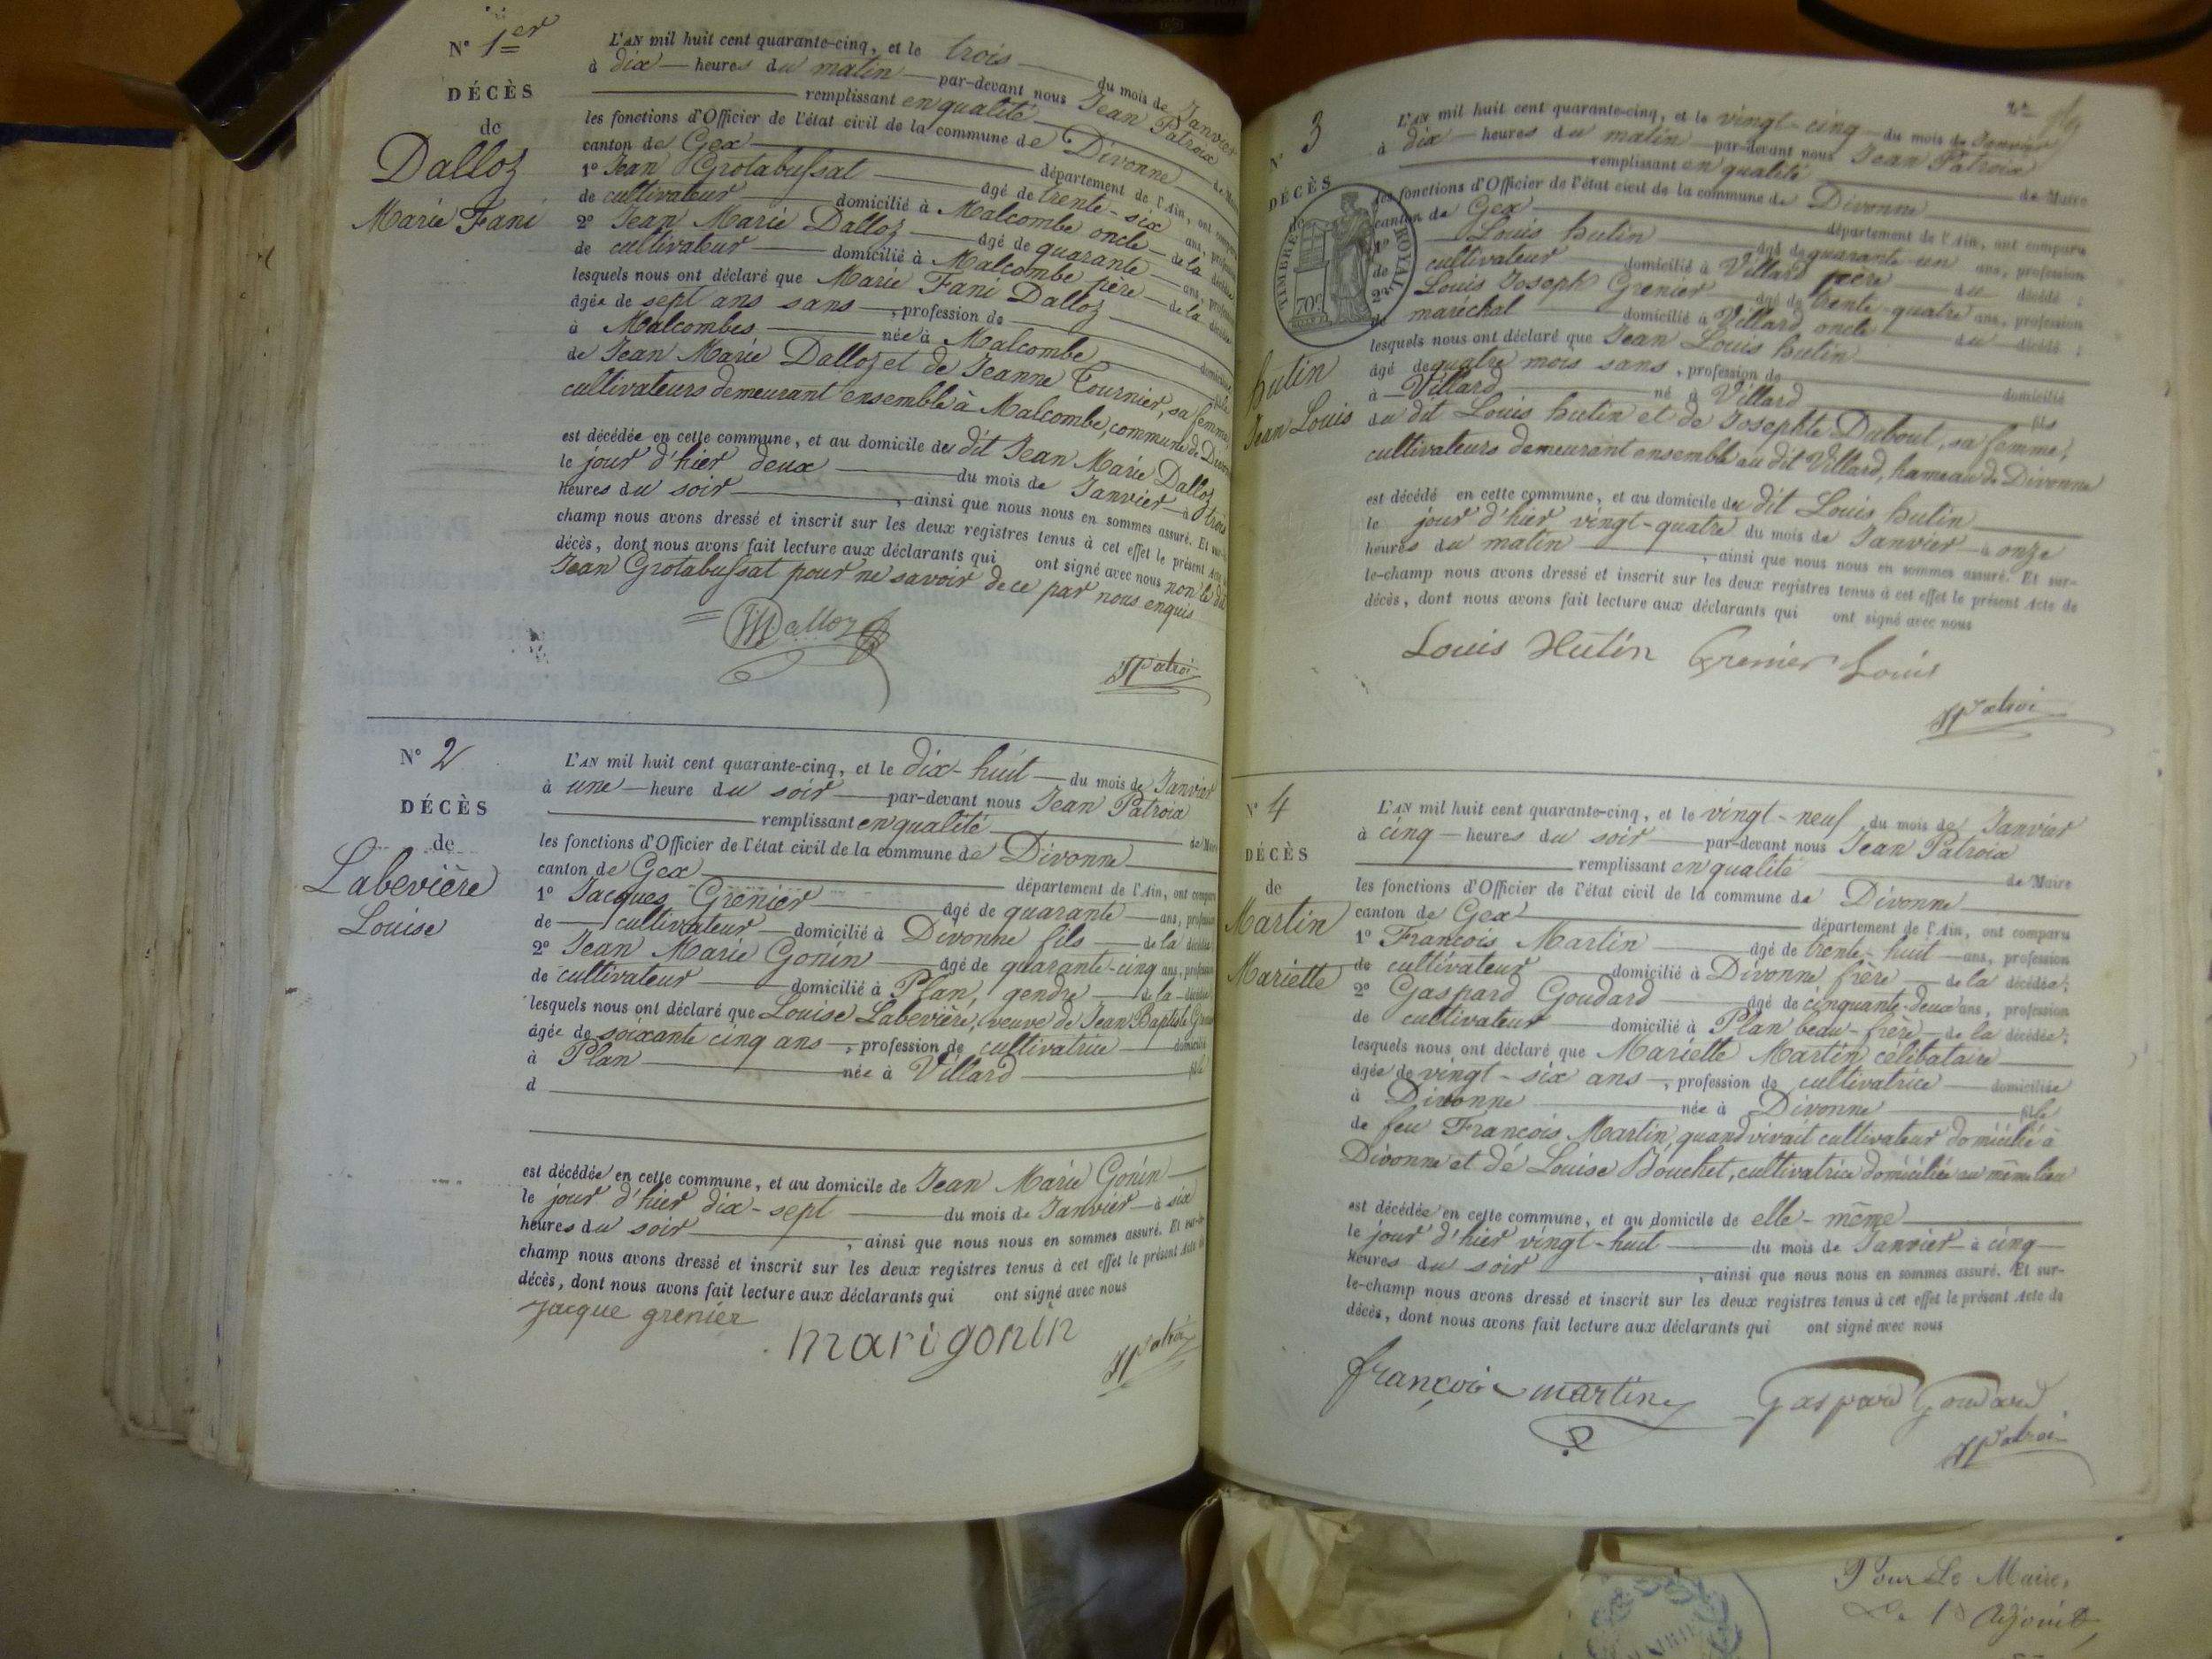 N° 1er
DÉCÈS
de
Dalloz
Marie Fani
L'AN mil huit cent quarante-cinq, et le trois du mois de Janvier
à dix heures du matin par-devant nous Jean Patroix
remplissant en qualité de Maire
les fonctions d'Officier de l'état civil de la commune de Divonne
canton de Gex département de l'Ain, ont comparu
1° Jean Grotabussat âgé de trente-six ans, profession
de cultivateur domicilié à Malcombe oncle de la décédée
2° Jean Marie Dalloz âgé de quarante ans, profession
de cultivateur domicilié à Malcombe père de la décédée
lesquels nous ont déclaré que Marie Fani Dalloz
âgée de sept ans sans, profession de domiciliée
à Malcombes née à Malcombe fille
de Jean Marie Dalloz et de Jeanne Tournier, sa femme
cultivateurs demeurant ensemble à Malcombe, commune de Divonne
est décédée en cette commune, et au domicile du dit Jean Marie Dalloz
le jour d'hier deux du mois de Janvier à trois
heures du soir, ainsi que nous nous en sommes assuré. Et sur-le-
champ nous avons dressé et inscrit sur les deux registres tenus à cet effet le présent Acte de
décès, dont nous avons fait lecture aux déclarants qui ont signé avec nous non le dit
Jean Grotabussat pour ne savoir de ce par nous enquis
JMDalloz
JPatroi
N° 2
DÉCÈS
de
Labevière
Louise
L'AN mil huit cent quarante-cinq, et le dix-huit du mois de Janvier
à une heure du soir par-devant nous Jean Patroix
remplissant en qualité de Maire
les fonctions d'Officier de l'état civil de la commune de Divonne
canton de Gex département de l'Ain, ont comparu
1° Jacques Grenier âgé de quarante ans, profession
de cultivateur domicilié à Divonne fils de la décédée
2° Jean Marie Gonin âgé de quarante-cinq ans, profession
de cultivateur domicilié à Plan, gendre de la décédée
lesquels nous ont déclaré que Louise Labevière, veuve de Jean Baptiste Grenier
âgée de soixante cinq ans, profession de cultivatrice domiciliée
à Plan née à Villard fille
d
est décédée en cette commune, et au domicile de Jean Marie Gonin
le jour d'hier dix-sept du mois de Janvier à six
heures du soir, ainsi que nous nous en sommes assuré. Et sur-le-
champ nous avons dressé et inscrit sur les deux registres tenus à cet effet le présent Acte de
décès, dont nous avons fait lecture aux déclarants qui ont signé avec nous
jacque grenier
marigonin
JPatroi
N° 3
DÉCÈS
de
TIMBRE ROYAL
70c
hutin
Jean Louis
L'AN mil huit cent quarante-cinq, et le vingt-cinq du mois de Janvier
à dix heures du matin par-devant nous Jean Patroix
remplissant en qualité de Maire
les fonctions d'Officier de l'état civil de la commune de Divonne
canton de Gex département de l'Ain, ont comparu
1° Louis hutin âgé de quarante-un ans, profession
de cultivateur domicilié à Villard père du décédé;
2° Louis Joseph Grenier âgé de trente-quatre ans, profession
de maréchal domicilié à Villard, oncle du décédé;
lesquels nous ont déclaré que Jean Louis hutin
âgé de quatre mois sans, profession de domicilié
à Villard né à Villard fils
du dit Louis hutin et de Josephte Dubout, sa femme,
cultivateurs demeurant ensemble au dit Villard, hameau de Divonne
est décédé en cette commune, et au domicile du dit Louis hutin
le jour d'hier vingt-quatre du mois de Janvier à onze
heures du matin, ainsi que nous nous en sommes assuré. Et sur-
le-champ nous avons dressé et inscrit sur les deux registres tenus à cet effet le présent Acte de
décès, dont nous avons fait lecture aux déclarants qui ont signé avec nous
Louis Hutin Grenier Louis
JPatroi
N° 4
DÉCÈS
de
Martin
Mariette
L'AN mil huit cent quarante-cinq, et le vingt-neuf du mois de Janvier
à cinq heures du soir par-devant nous Jean Patroix
remplissant en qualité de Maire
les fonctions d'Officier de l'état civil de la commune de Divonne
canton de Gex département de l'Ain, ont comparu
1° François Martin âgé de trente-huit ans, profession
de cultivateur domicilié à Divonne frère de la décédée;
2° Gaspard Goudard âgé de cinquante-deux ans, profession
de cultivateur domicilié à Plan beau-frère de la décédée;
lesquels nous ont déclaré que Mariette Martin célibataire
âgée de vingt-six ans, profession de cultivatrice domiciliée
à Divonne née à Divonne fille
de feu François Martin, quand vivait cultivateur domicilié à
Divonne et de Louise Bouchet, cultivatrice domiciliée au même lieu
est décédée en cette commune, et au domicile de elle-même
le jour d'hier vingt-huit du mois de Janvier à cinq
heures du soir, ainsi que nous nous en sommes assuré. Et sur-
le-champ nous avons dressé et inscrit sur les deux registres tenus à cet effet le présent Acte de
décès, dont nous avons fait lecture aux déclarants qui ont signé avec nous
françois martin Gaspard Goudard
JPatroi
Pour Le Maire,
Adjoint